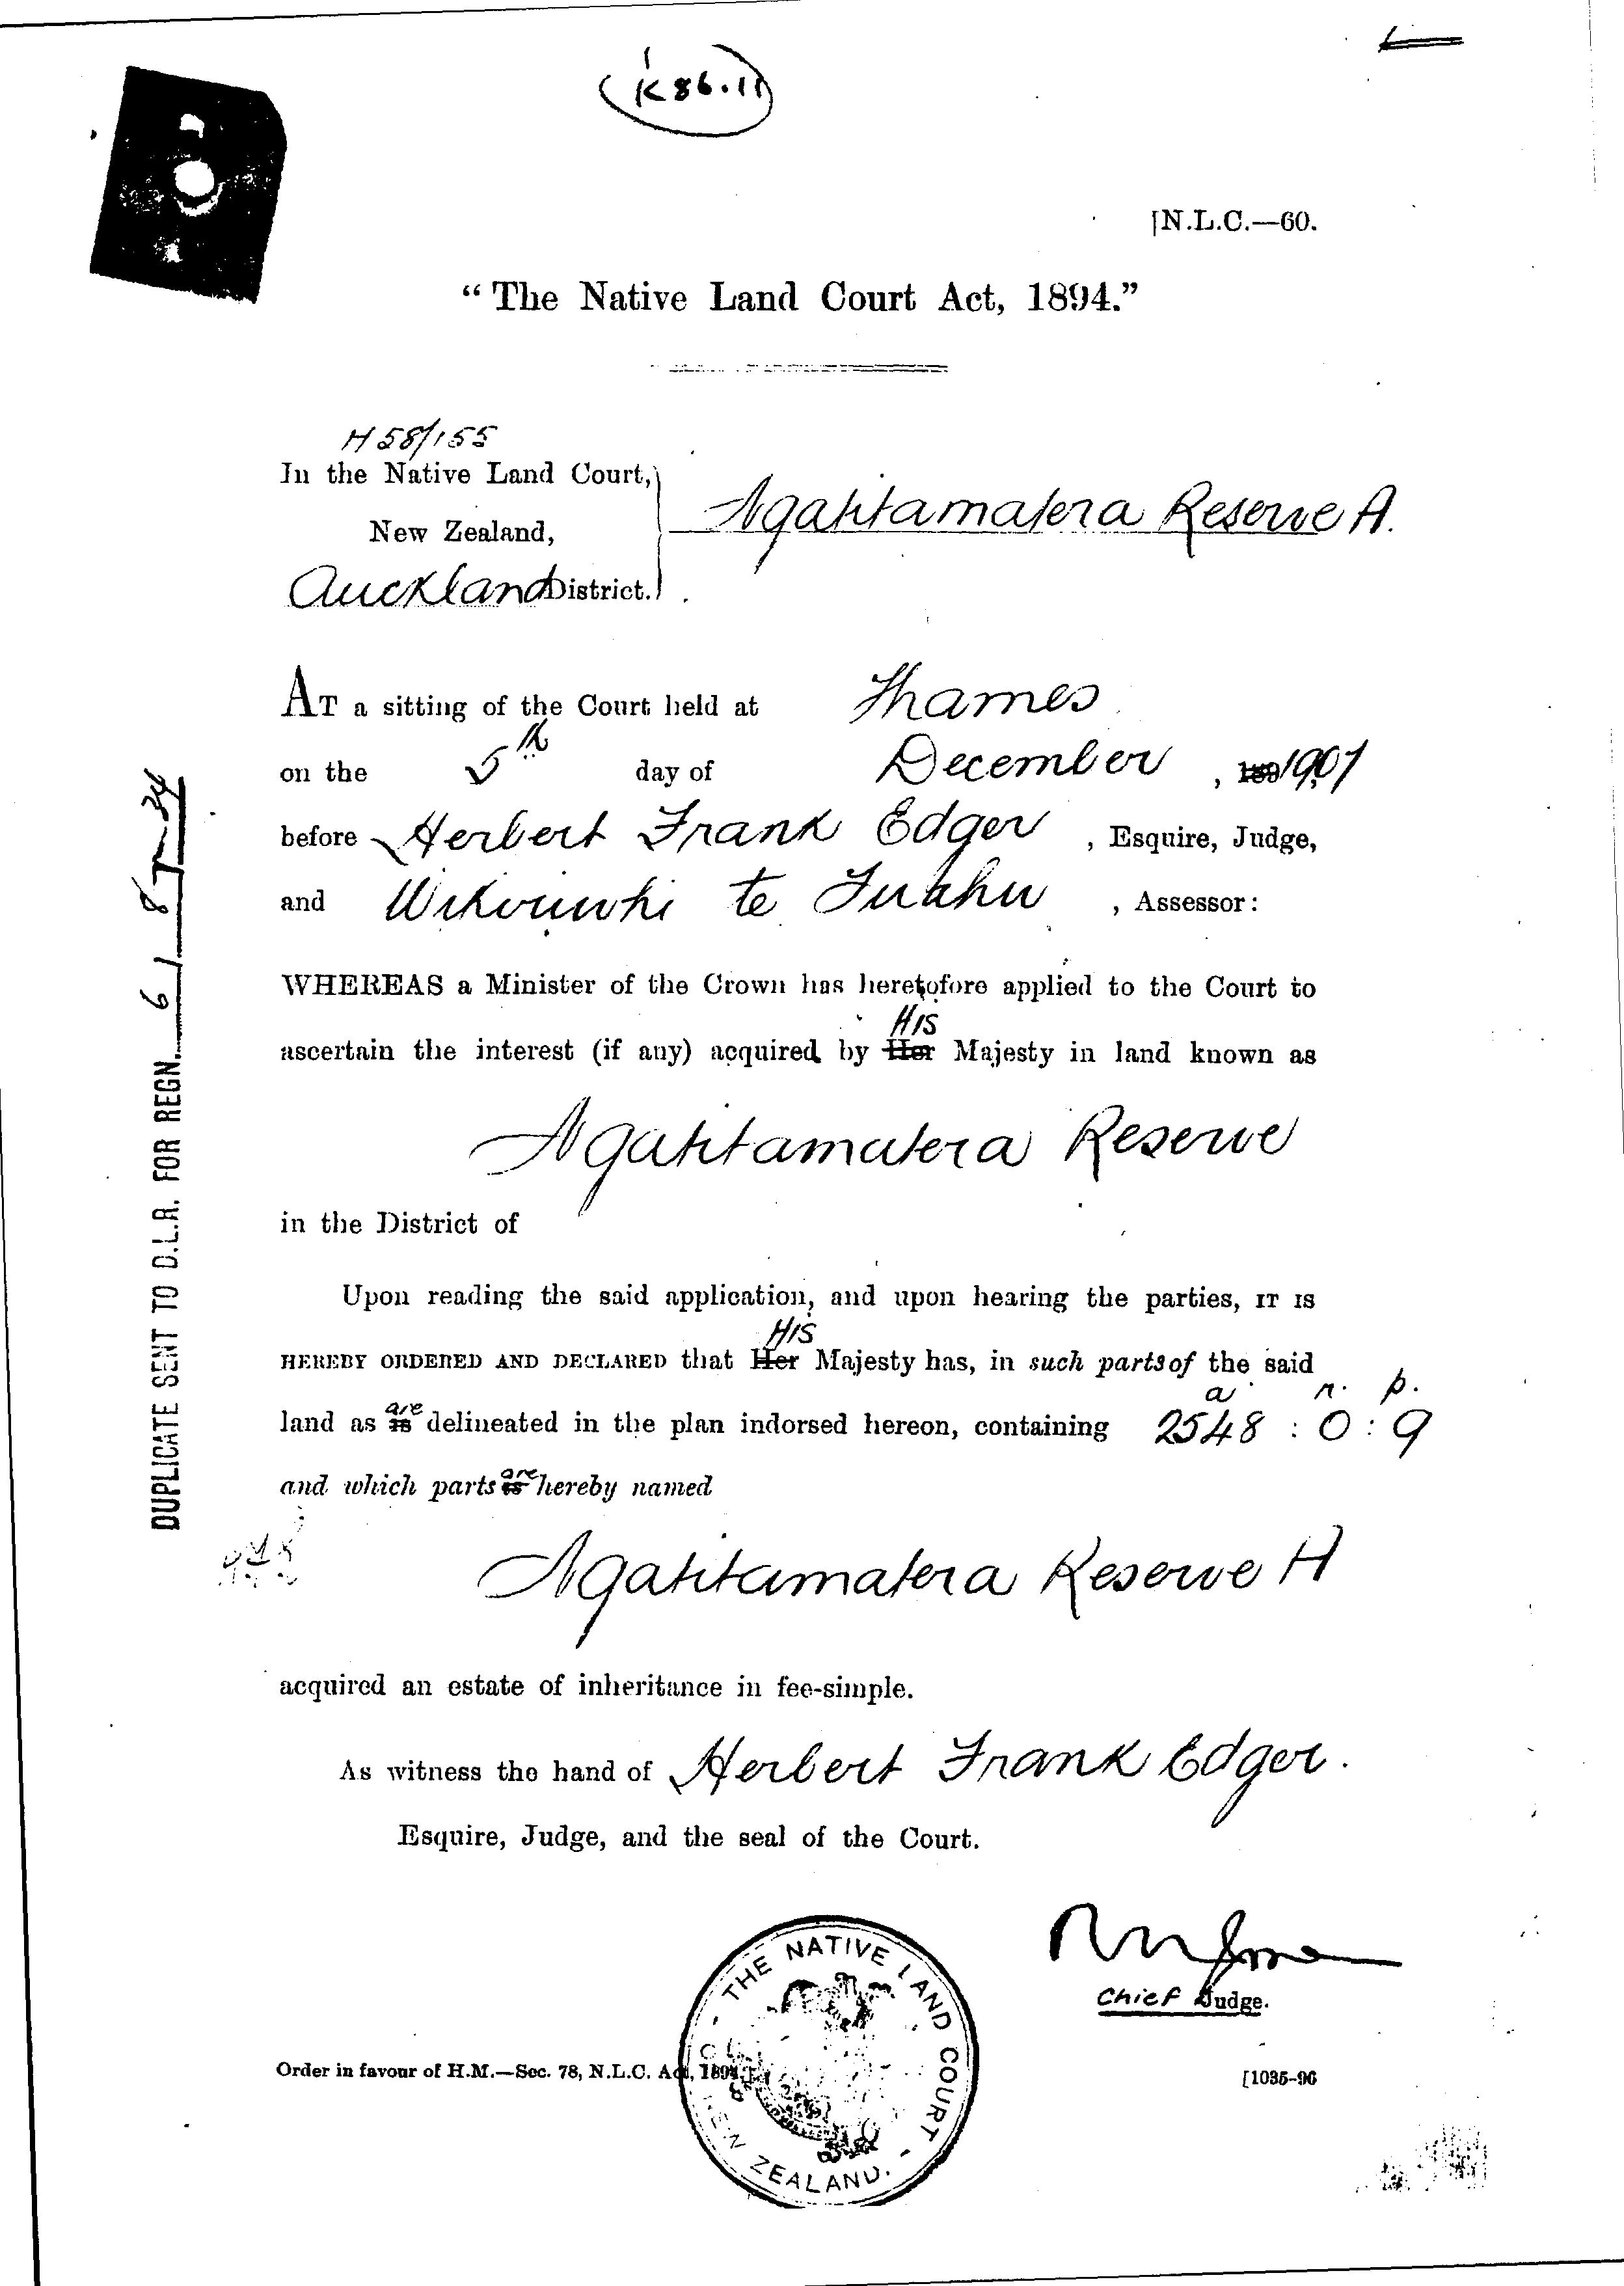 K 86.11
[N.L.C.—60.
"The Native Land Court Act, 1894."
H 58/155
In the Native Land Court,
New Zealand,
Auckland District.
Ngatitamatera Reserve A.
AT a sitting of the Court held at Thames
on the 5th day of December, 189 1907
before Herbert Frank Edger, Esquire, Judge,
and te, Assessor:
WHEREAS a Minister of the Crown has heretofore applied to the Court to
His
ascertain the interest (if any) acquired by Her Majesty in land known as
Ngatitamatera Reserve
in the District of
Upon reading the said application, and upon hearing the parties, IT IS
His
HEREBY ORDERED AND DECLARED that Her Majesty has, in such parts of the said
a r. p.
are
land as is delineated in the plan indorsed hereon, containing 2548 : 0 : 9
are
and which parts is hereby named
Ngatitamatera Reserve
acquired an estate of inheritance in fee-simple.
As witness the hand of Herbert Frank Edger.
Esquire, Judge, and the seal of the Court.
Chief Judge.
THE NATIVE LAND COURT - NEW ZEALAND.
Order in favour of H.M.—Sec. 78, N.L.C. Act, 1894.
[1035-96
DUPLICATE SENT TO D.L.R. FOR REGN. 6 / 8